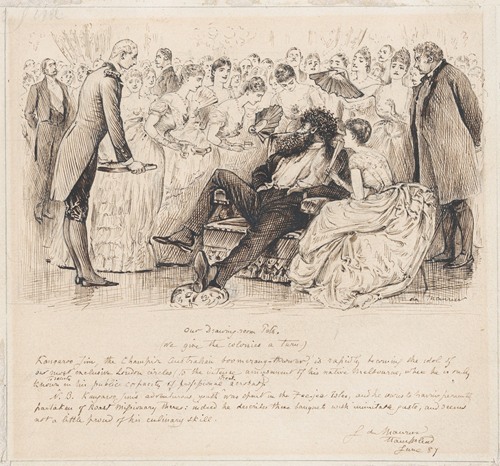 du Maurier
Our Drawing-room Pets.
(We give the colonies a turn)
Kangaroo Jim, the Champion Australian boomerang-thrower, is rapidly becoming the idol of
our most exclusive London circles, to the intense amusement of his native Melbourne, where he is only
known in his public capacity of
N. B. Kangaroo Jim's adventurous youth was spent in the Feejee Isles, and he owns to having frequently
partaken of roast missionary there; indeed he describes those banquets with inimitable gusto, and seems
not a little proud of his culinary skill.
du Maurier
Hampstead
June 87